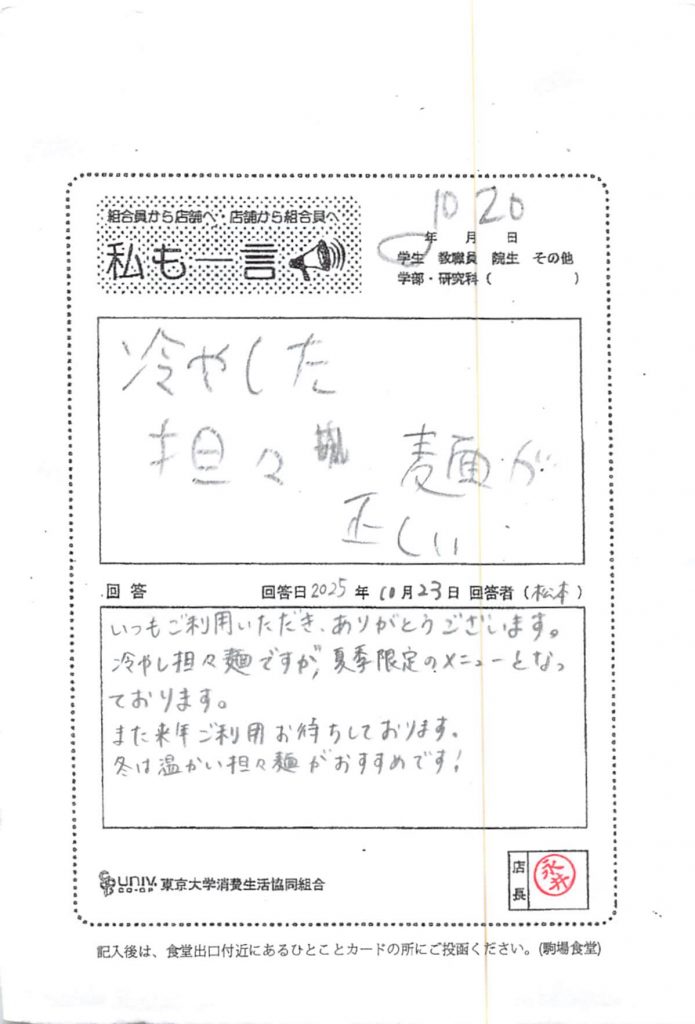 組合員から店舗へ・店舗から組合員へ
私も一言
10 20
年 月 日
学生 教職員 院生 その他
学部・研究科 ( )
冷やした
担々 麺が
正しい
回答 回答日2025年10月23日 回答者 (松本)
いつもご利用いただき、ありがとうございます。
冷やし担々麺ですが、夏季限定のメニューとなっ
ております。
また来年ご利用お待ちしております。
冬は温かい担々麺がおすすめです!
UNIV. CO-OP 東京大学消費生活協同組合
店長 永井
記入後は、食堂出口付近にあるひとことカードの所にご投函ください。(駒場食堂)